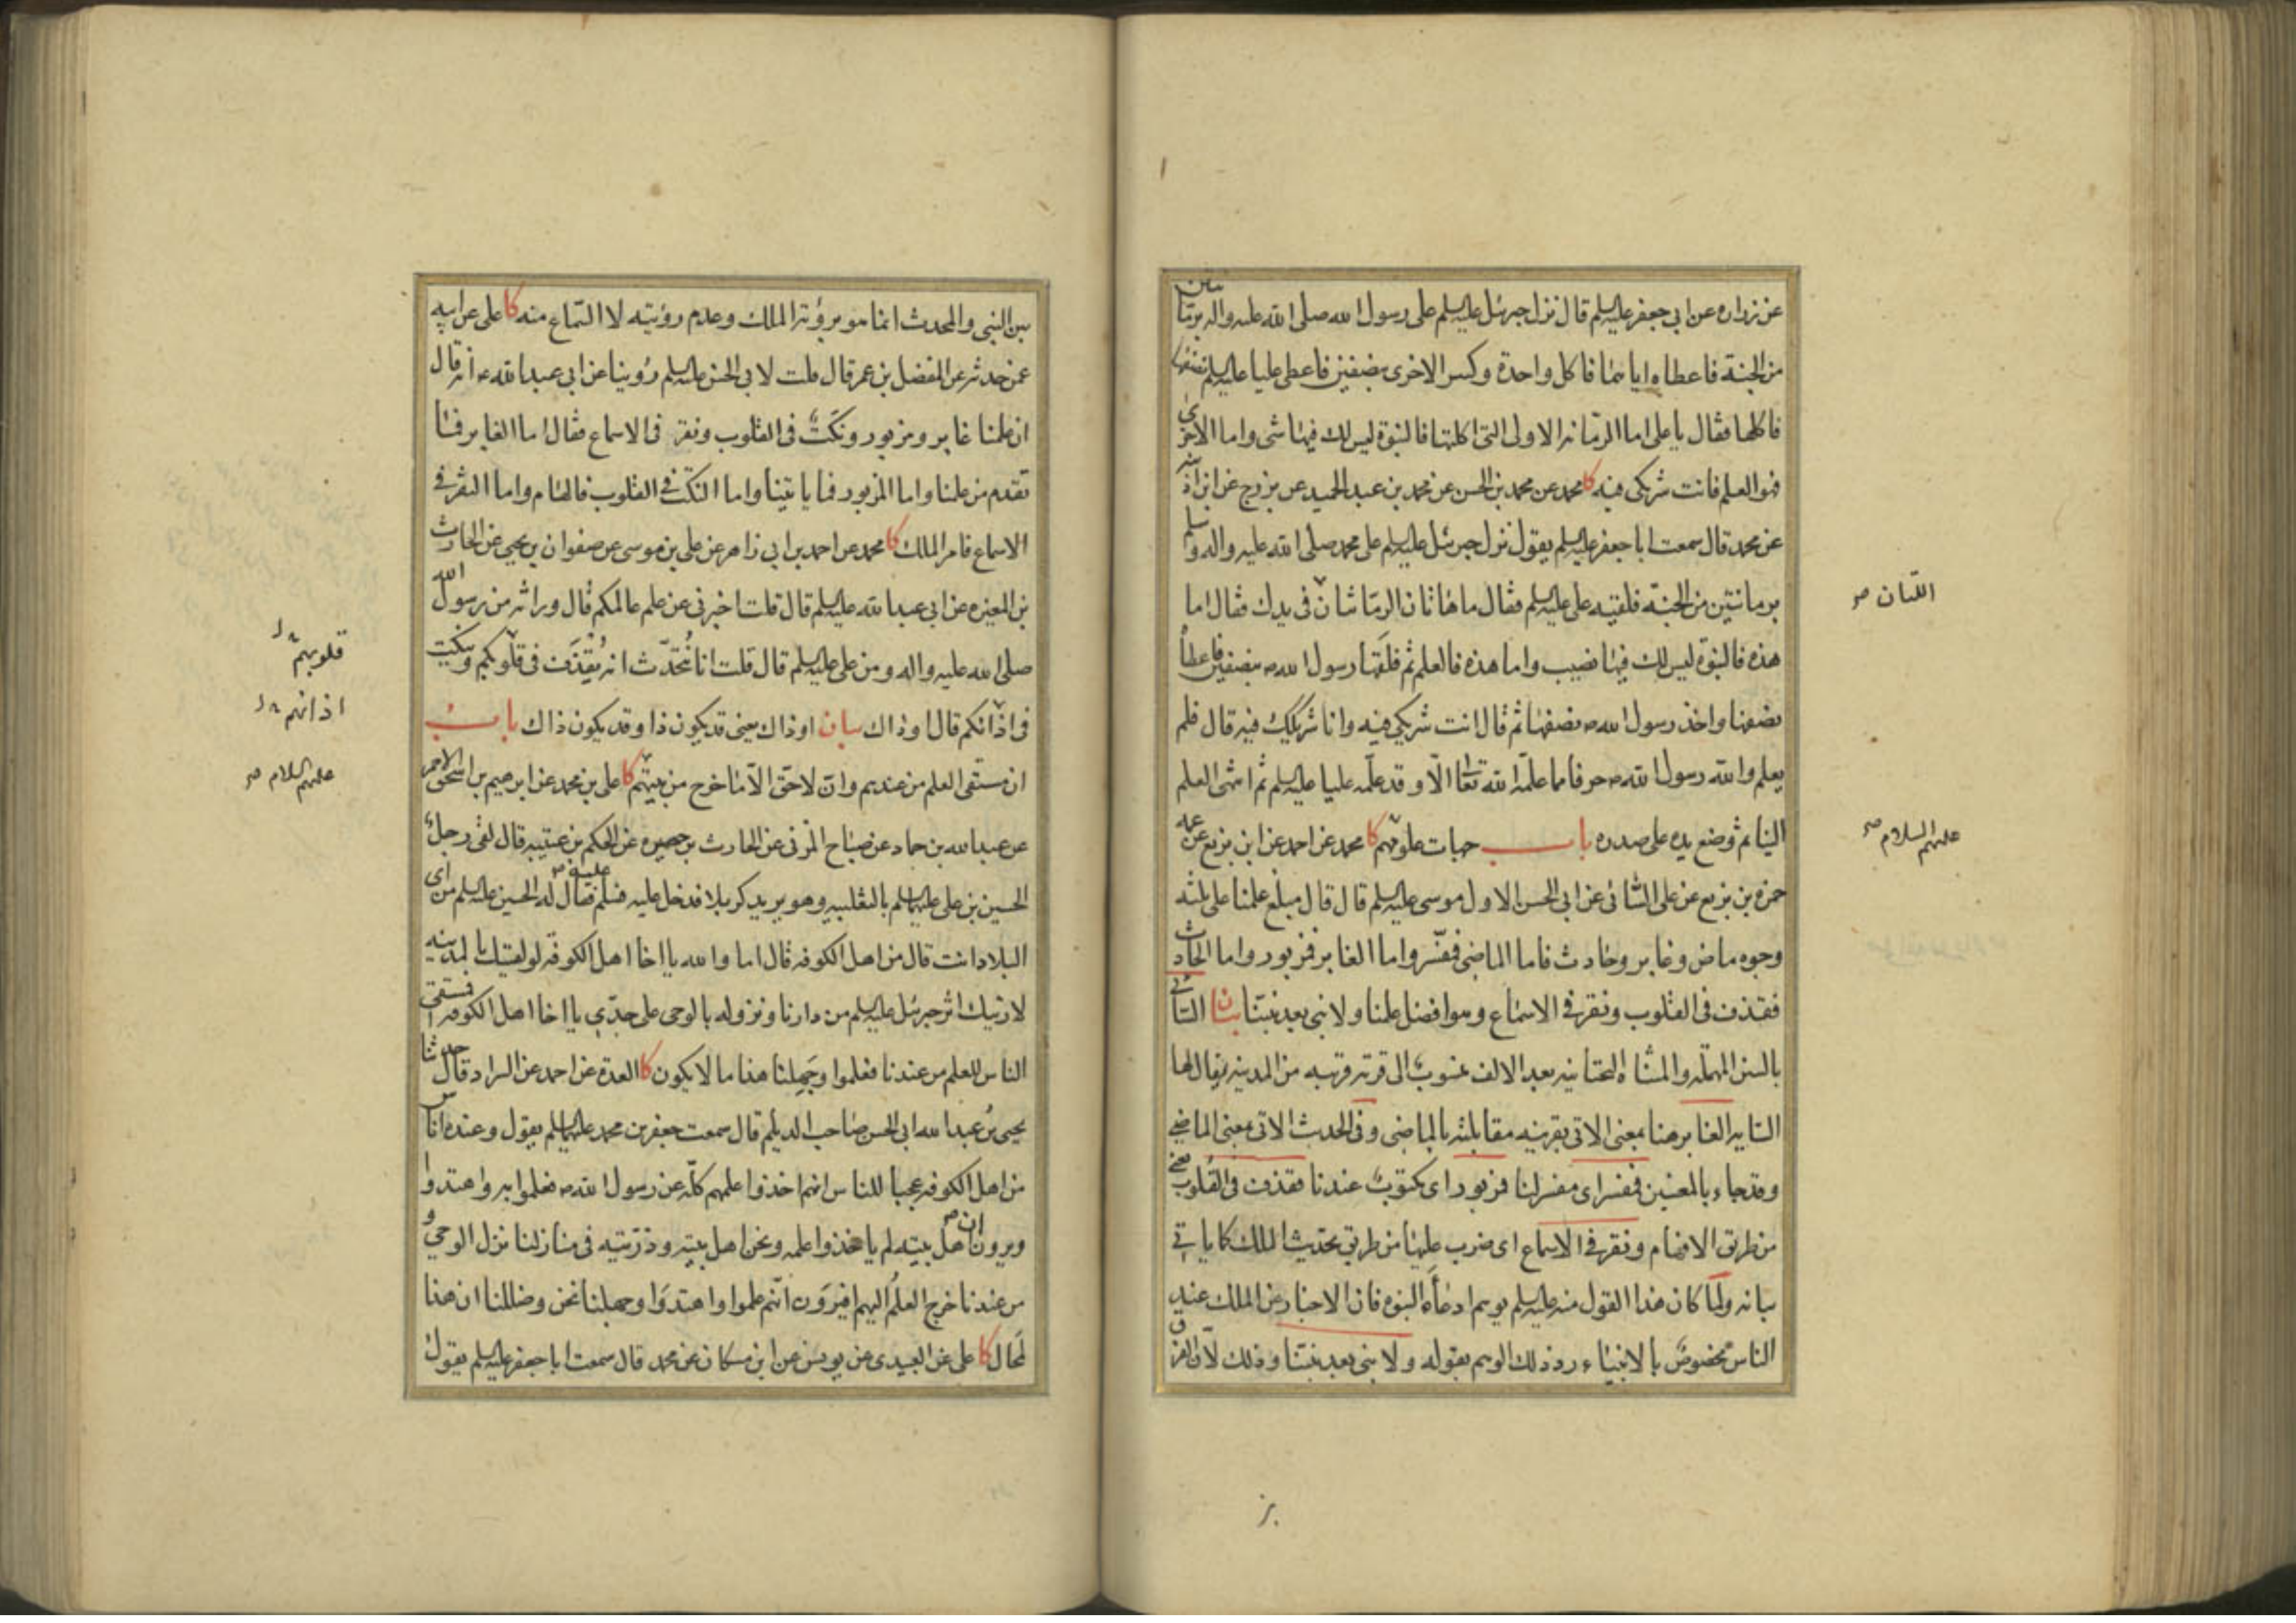 عن زراره عن ابي جعفر عليه السلم قال نزل جبرئيل عليه السلم على رسول الله صلى الله عليه واله برمانتين
من الجنة فاعطاه اياهما فاكل واحدة وكسر الاخرى بنصفين فاعطى عليا عليه السلم نصفها
فاكلها فقال يا على اما الرمانه الاولى التى اكلتها فالنبوة ليس لك فيها شى واما الاخرى
فهو العلم فانت شريكى فيه كا محمد عن محمد بن الحسن عن محمد بن عبد الحميد عن بزرج عن ابن اذينه
عن محمد قال سمعت ابا جعفر عليه السلم يقول نزل جبرئيل عليه السلم على محمد صلى الله عليه واله وسلم
برمانتين من الجنة فلقيه على عليه السلم فقال ما هاتان الرمانتان فى يدك فقال اما
اللتان صح
هذه فالنبوة ليس لك فيها نصيب واما هذه فالعلم ثم فلقها رسول الله ص بنصفين فاعطاه
نصفها واخذ رسول الله ص نصفها ثم قال انت شريكى فيه وانا شريكك فيه قال فلم
يعلم والله رسول الله ص حرفا مما علمه الله تعالى الا وقد علمه عليا عليه السلم ثم انتهى العلم
الينا ثم وضع يده على صدره باب جهات علومهم كا محمد عن احمد عن ابن بزيع عن عمه
عليهم السلام صح
حمزه بن بزيع عن على السائى عن ابى الحسن الاول موسى عليه السلم قال قال مبلغ علمنا على ثلثه
وجوه ماض وغابر وحادث فاما الماضى فمفسر واما الغابر فمزبور واما الحادث
فقذف فى القلوب ونقر فى الاسماع وهو افضل علمنا ولا نبى بعد نبينا بيان السائى
بالسين المهمله والمثناة التحتانيه بعد الالف منسوب الى قرية قريبه من المدينه يقال لها
السايه الغابر هنا بمعنى الاتى بقرينه مقابلته بالماضى وفى الحديث الاتى بمعنى الماضى
وقد جاء بالمعنيين فمفسر اى مفسر لنا فمزبور اى مكتوب عندنا فقذف فى القلوب يعنى
من طريق الالهام ونقر فى الاسماع اى ضرب عليها من طريق تحديث الملك كما ياتى
بيانه ولما كان هذا القول منه عليه السلم يوهم ادعاه النبوه فان الاخبار عن الملك عند
الناس مخصوص بالانبياء رد ذلك الوهم بقوله ولا نبى بعد نبينا وذلك لان الفرق
بين النبي والمحدث انما هو برؤية الملك وعدم رؤيته لا السماع منه كا على عن ابيه
عمن حدثه عن المفضل بن عمر قال قلت لابى الحسن عليه السلم روينا عن ابى عبد الله ع انه قال
ان علمنا غابر ومزبور ونكت فى القلوب ونقر فى الاسماع فقال اما الغابر فما
تقدم من علمنا واما المزبور فما ياتينا واما النكت فى القلوب فالهام واما النقر فى
الاسماع فامر الملك كا محمد عن احمد بن ابى زاهر عن على بن موسى عن صفوان بن يحيى عن الحارث
بن المغيره عن ابى عبد الله عليه السلم قال قلت اخبرنى عن علم عالمكم قال وراثه من رسول الله
صلى الله عليه واله ومن على عليه السلم قال قلت انا نتحدث انه يقذف فى قلوبكم وينكت
قلوبهم
فى اذانكم قال او ذاك بيان او ذاك يعنى قد يكون ذا وقد يكون ذاك باب
اذانهم
ان مستقى العلم من عندهم وان لا حق الا ما خرج من بيتهم كا على بن محمد عن ابرهيم بن اسحق الاحمر
عليهم السلام صح
عن عبد الله بن حماد عن صباح المزنى عن الحارث بن حصيره عن الحكم بن عتيبه قال لقى رجل
الحسين بن على عليهما السلم بالثعلبيه وهو يريد كربلا فدخل عليه فسلم عليه فقال له الحسين عليه السلم من اى
البلاد انت قال من اهل الكوفه قال اما والله يا اخا اهل الكوفه لو لقيتك بالمدينه
لاريتك اثر جبرئيل عليه السلم من دارنا ونزوله بالوحى على جدى يا اخا اهل الكوفه افمستقى
الناس العلم من عندنا فعلموا وجهلنا هذا ما لا يكون كا العدة عن احمد عن السراد قال حدثنا
يحيى بن عبد الله ابى الحسن صاحب الديلم قال سمعت جعفر بن محمد عليهما السلم يقول وعنده اناس
من اهل الكوفه عجبا للناس انهم اخذوا علمهم كله عن رسول الله ص فعلموا به واهتدوا
ويرون ان اهل بيته لم ياخذوا علمه ونحن اهل بيته وذريته فى منازلنا نزل الوحى و
من عندنا خرج العلم اليهم افيرون انهم علموا واهتدوا وجهلنا نحن وضللنا ان هذا
لمحال كا على عن العبيدى عن يونس عن ابن مسكان عن محمد قال سمعت ابا جعفر عليه السلم يقول